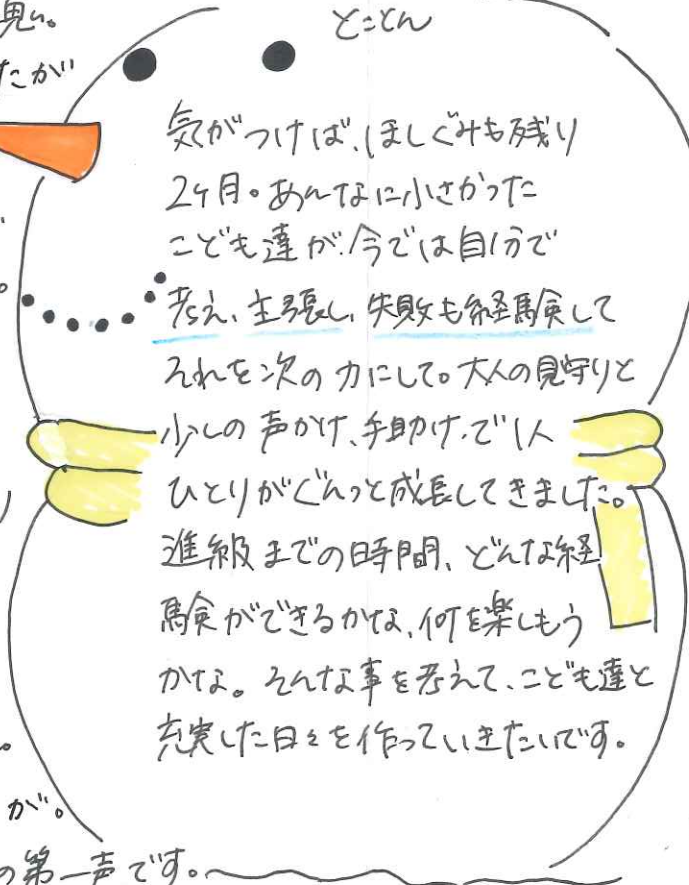 思い。
たが
とことん
気がつけば、ほしぐみも残り
2ヶ月。あんなに小さかった
こども達が、今では自分で
考え、主張し、失敗も経験して
それを次の力にして。大人の見守りと
少しの声かけ、手助け、で1人
ひとりがぐんっと成長してきました。
進級までの時間、どんな経
験ができるかな、何を楽しもう
かな。そんな事を考えて、こども達と
充実した日々を作っていきたいです。
が。
の第一声です。